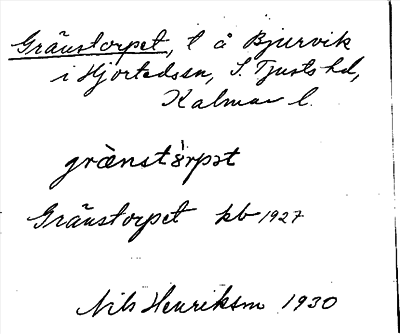 Gränstorpet, t å Bjurvik
i Hjortedsen, S. Tjusts hd,
Kalmar l.
grànstörpət
Gränstorpet kb 1927
Nils Henrikson 1930